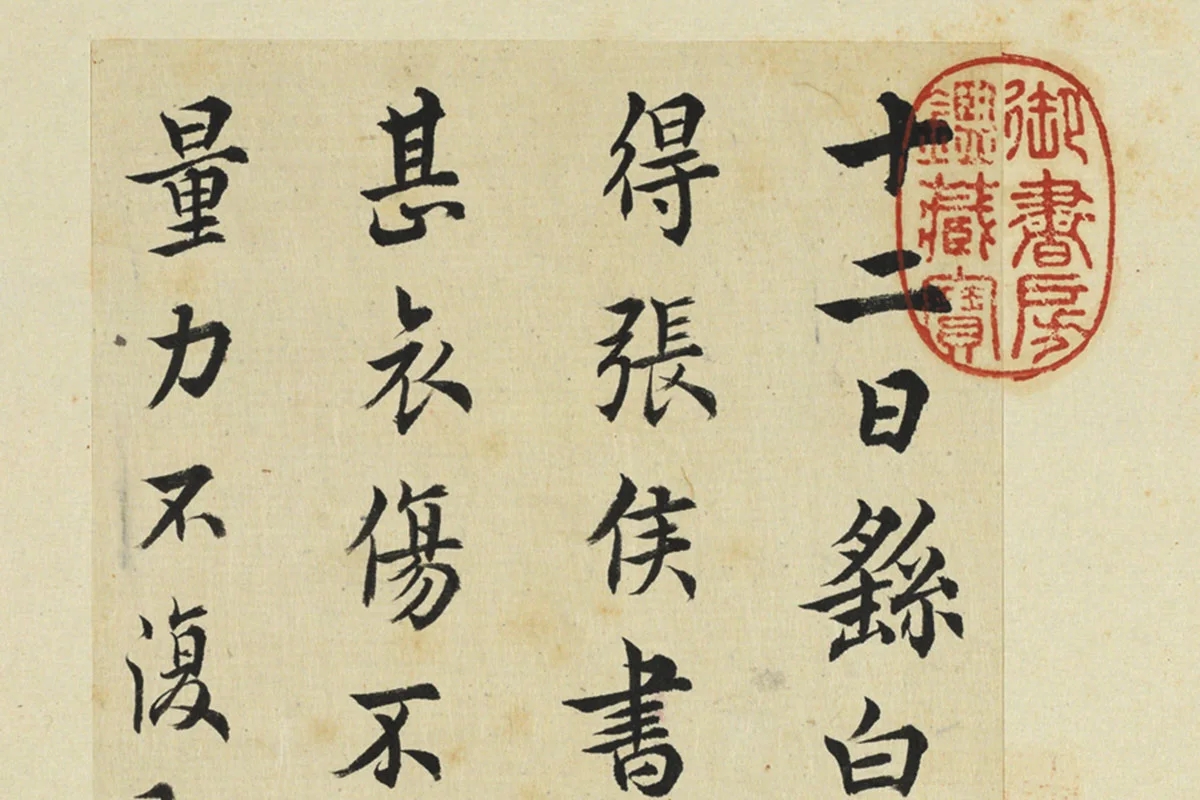 御書房
鑑藏寶
十二日繇白
得張侯書
甚衣傷不
量力不復